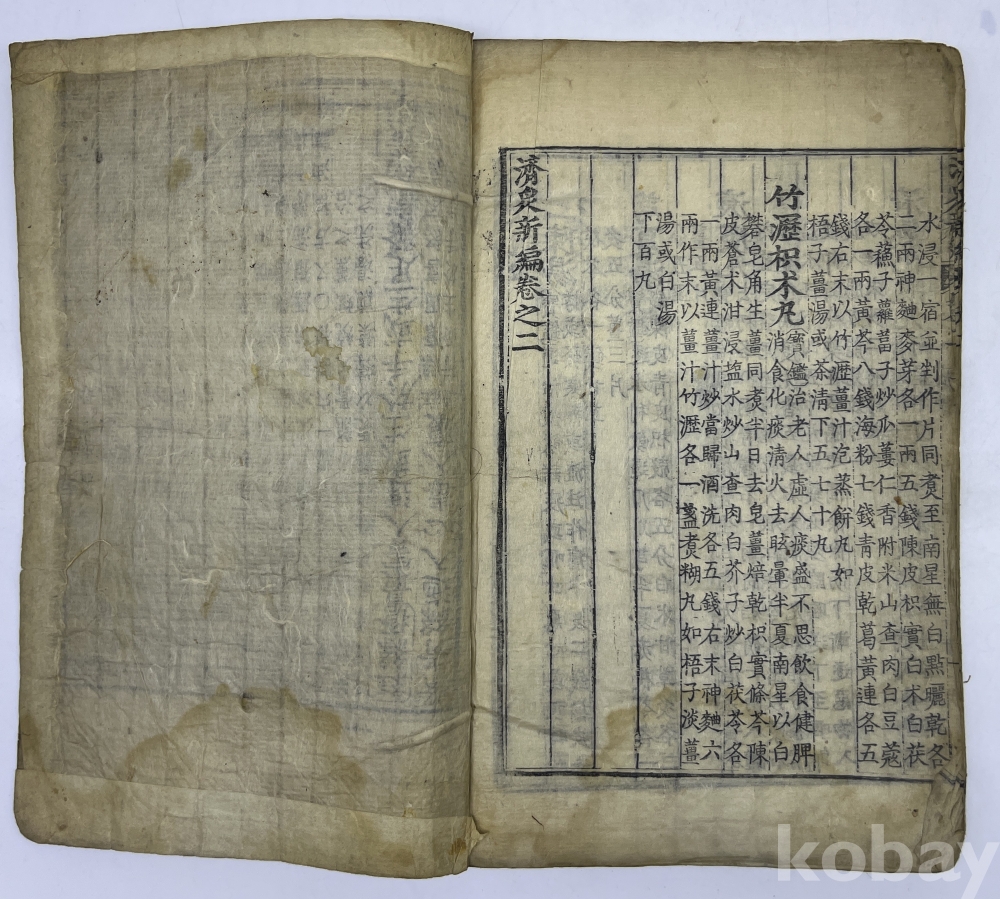 水浸一宿並剉作片同煑至南星無白點曬乾各
二兩神麯麥芽各一兩五錢陳皮枳實白朮白茯
苓蘓子蘿葍子炒瓜蔞仁香附米山査肉白豆蔻
各一兩黃芩八錢海粉七錢靑皮乾葛黃連各五
錢右末以竹瀝薑汁泡蒸餠丸如
梧子薑湯或茶淸下五七十丸
竹瀝枳朮丸
寶鑑治老人虛人痰盛不思飮食健脾
消食化痰淸火去眩暈半夏南星以白
礬皂角生薑同煑半日去皂薑焙乾枳實條芩陳
皮蒼朮泔浸塩水炒山査肉白芥子炒白茯苓各
一兩黃連薑汁炒當歸酒洗各五錢右末神麯六
兩作末以薑汁竹瀝各一盞煑糊丸如梧子淡薑
湯或白湯
下百丸
濟衆新編卷之二
kobay